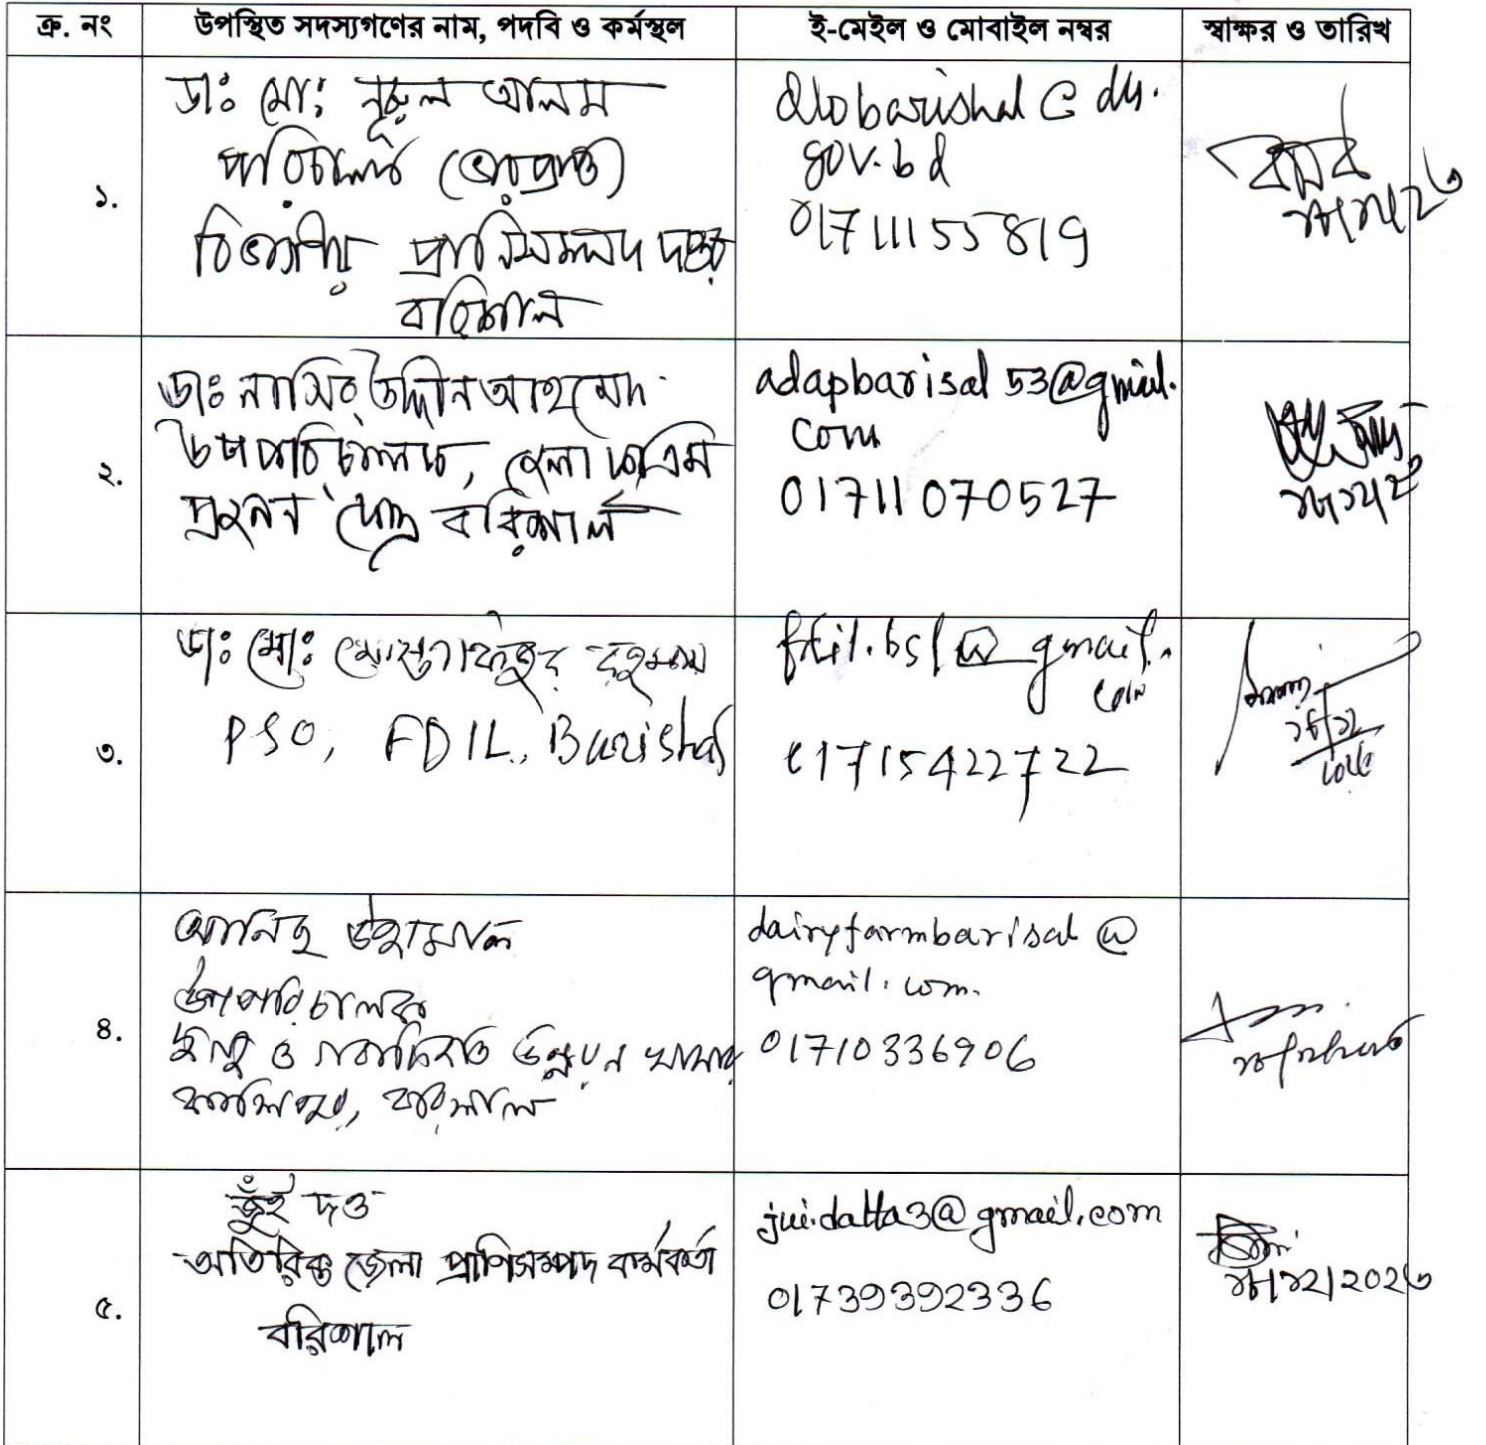 ক্র. নং
উপস্থিত সদস্যগণের নাম, পদবি ও কর্মস্থল
ই-মেইল ও মোবাইল নম্বর
স্বাক্ষর ও তারিখ
১.
ডাঃ মোঃ নূরুল আলম
পরিচালক (ভারপ্রাপ্ত)
বিভাগীয় প্রাণিসম্পদ দপ্তর
বরিশাল
dlobarishal@dls.
gov.bd
01711155819
২.
ডাঃ নাসির উদ্দীন আহমেদ
উপপরিচালক, জেলা কৃত্রিম
প্রজনন কেন্দ্র বরিশাল
adapbarisal53@gmail.
com
01711070527
৩.
ডাঃ মোঃ মোস্তাফিজুর রহমান
PSO, FDIL, Barishal
fdil.bsl@gmail.
com
01715422722
৪.
উপপরিচালক
দুগ্ধ ও গবাদিপশু উন্নয়ন খামার
বরিশাল
dairyfarmbarisal@
gmail.com.
01710336906
৫.
জুঁই দত্ত
অতিরিক্ত জেলা প্রাণিসম্পদ কর্মকর্তা
বরিশাল
jui.datta3@gmail.com
01739392336